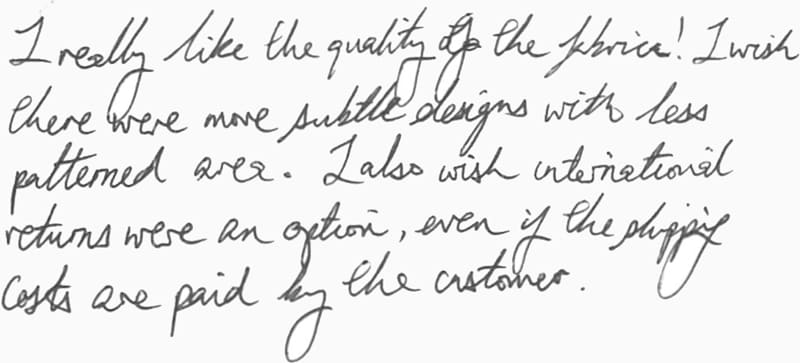 I really like the quality of the fabrics! I wish
there were more subtle designs with less
patterned area. I also wish international
returns were an option, even if the shipping
costs are paid by the customer.